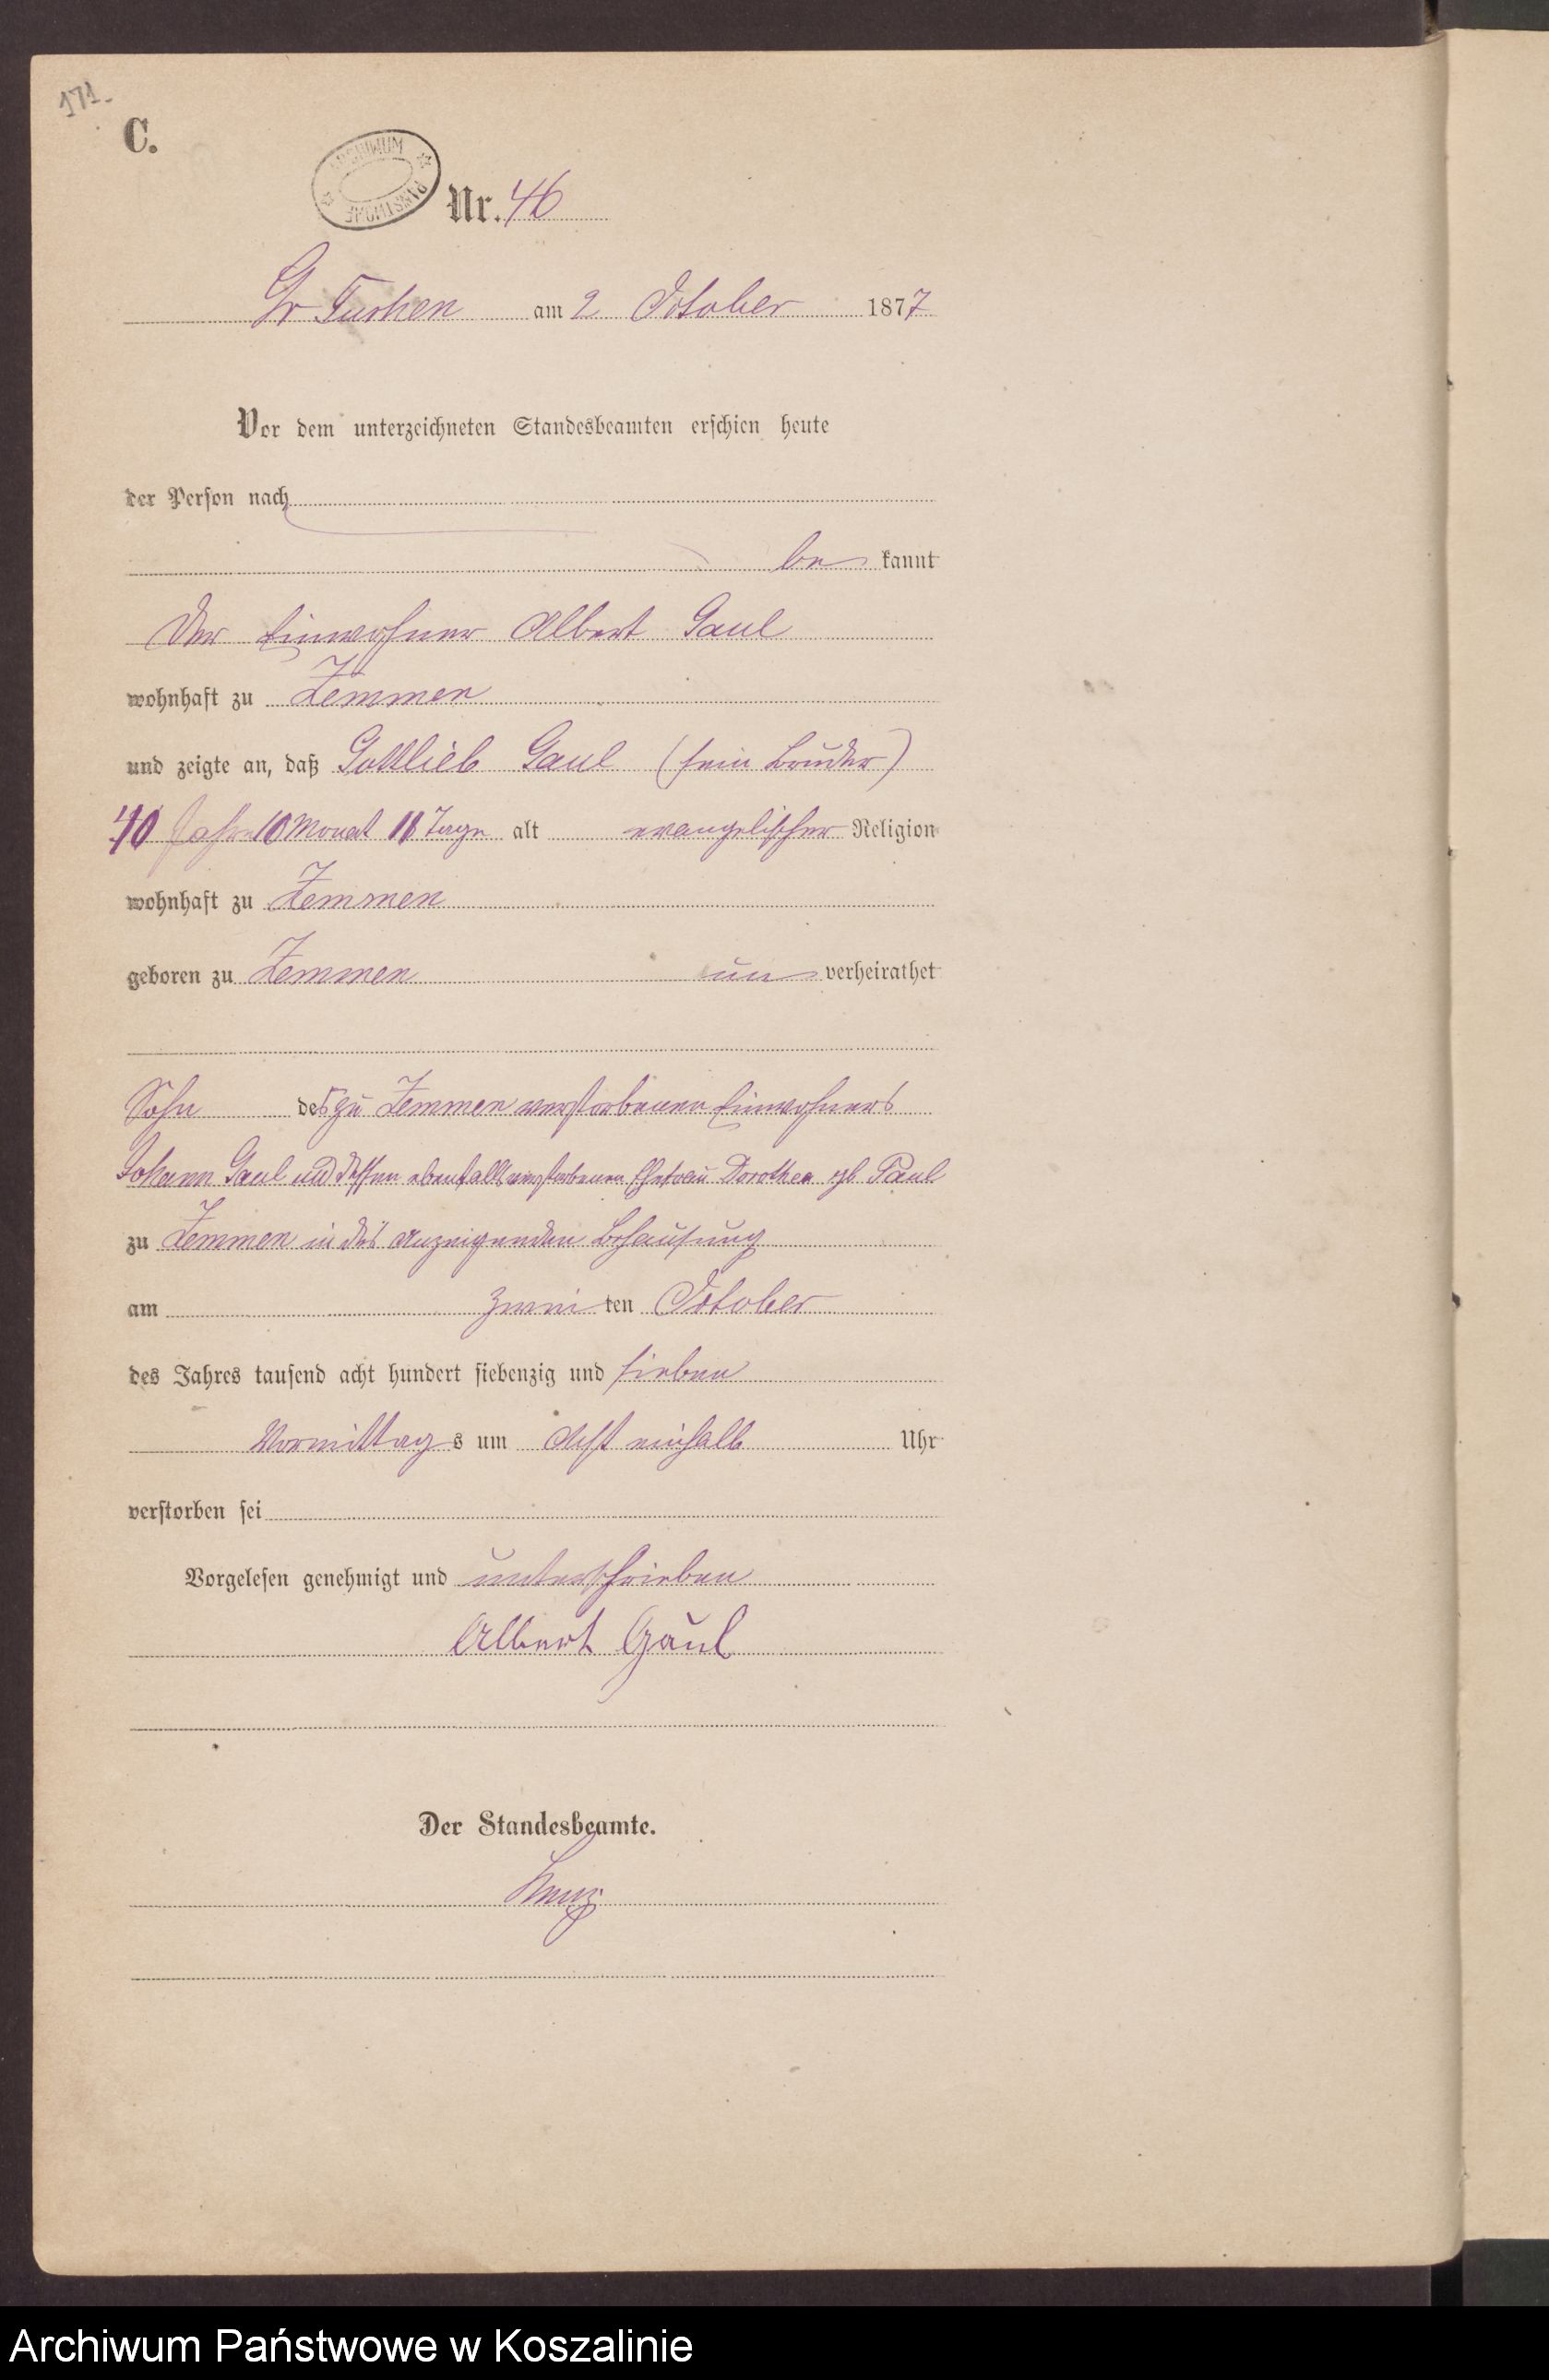 171.
C.
ARCHIWUM PAŃSTWOWE
Nr. 46
Gr Tuchen am 2 October 1877
Vor dem unterzeichneten Standesbeamten erschien heute
der Person nach
be kannt
Der Einwohner Albert Gaul
wohnhaft zu Zemmen
und zeigte an, daß Gottlieb Gaul (sein Bruder)
40 Jahre 10 Monat 18 Tage alt evangelischer Religion
wohnhaft zu Zemmen
geboren zu Zemmen un verheirathet
Sohn des zu Zemmen verstorbenen Einwohners
Johann Gaul und dessen ebenfalls verstorbenen Ehefrau Dorothea gb. Paul
zu Zemmen in des Anzeigenden Behausung
am zwei ten October
des Jahres tausend acht hundert siebenzig und sieben
Vormittag s um Acht einhalb Uhr
verstorben sei
Vorgelesen genehmigt und unterschrieben
Albert Gaul
Der Standesbeamte.
Archiwum Państwowe w Koszalinie